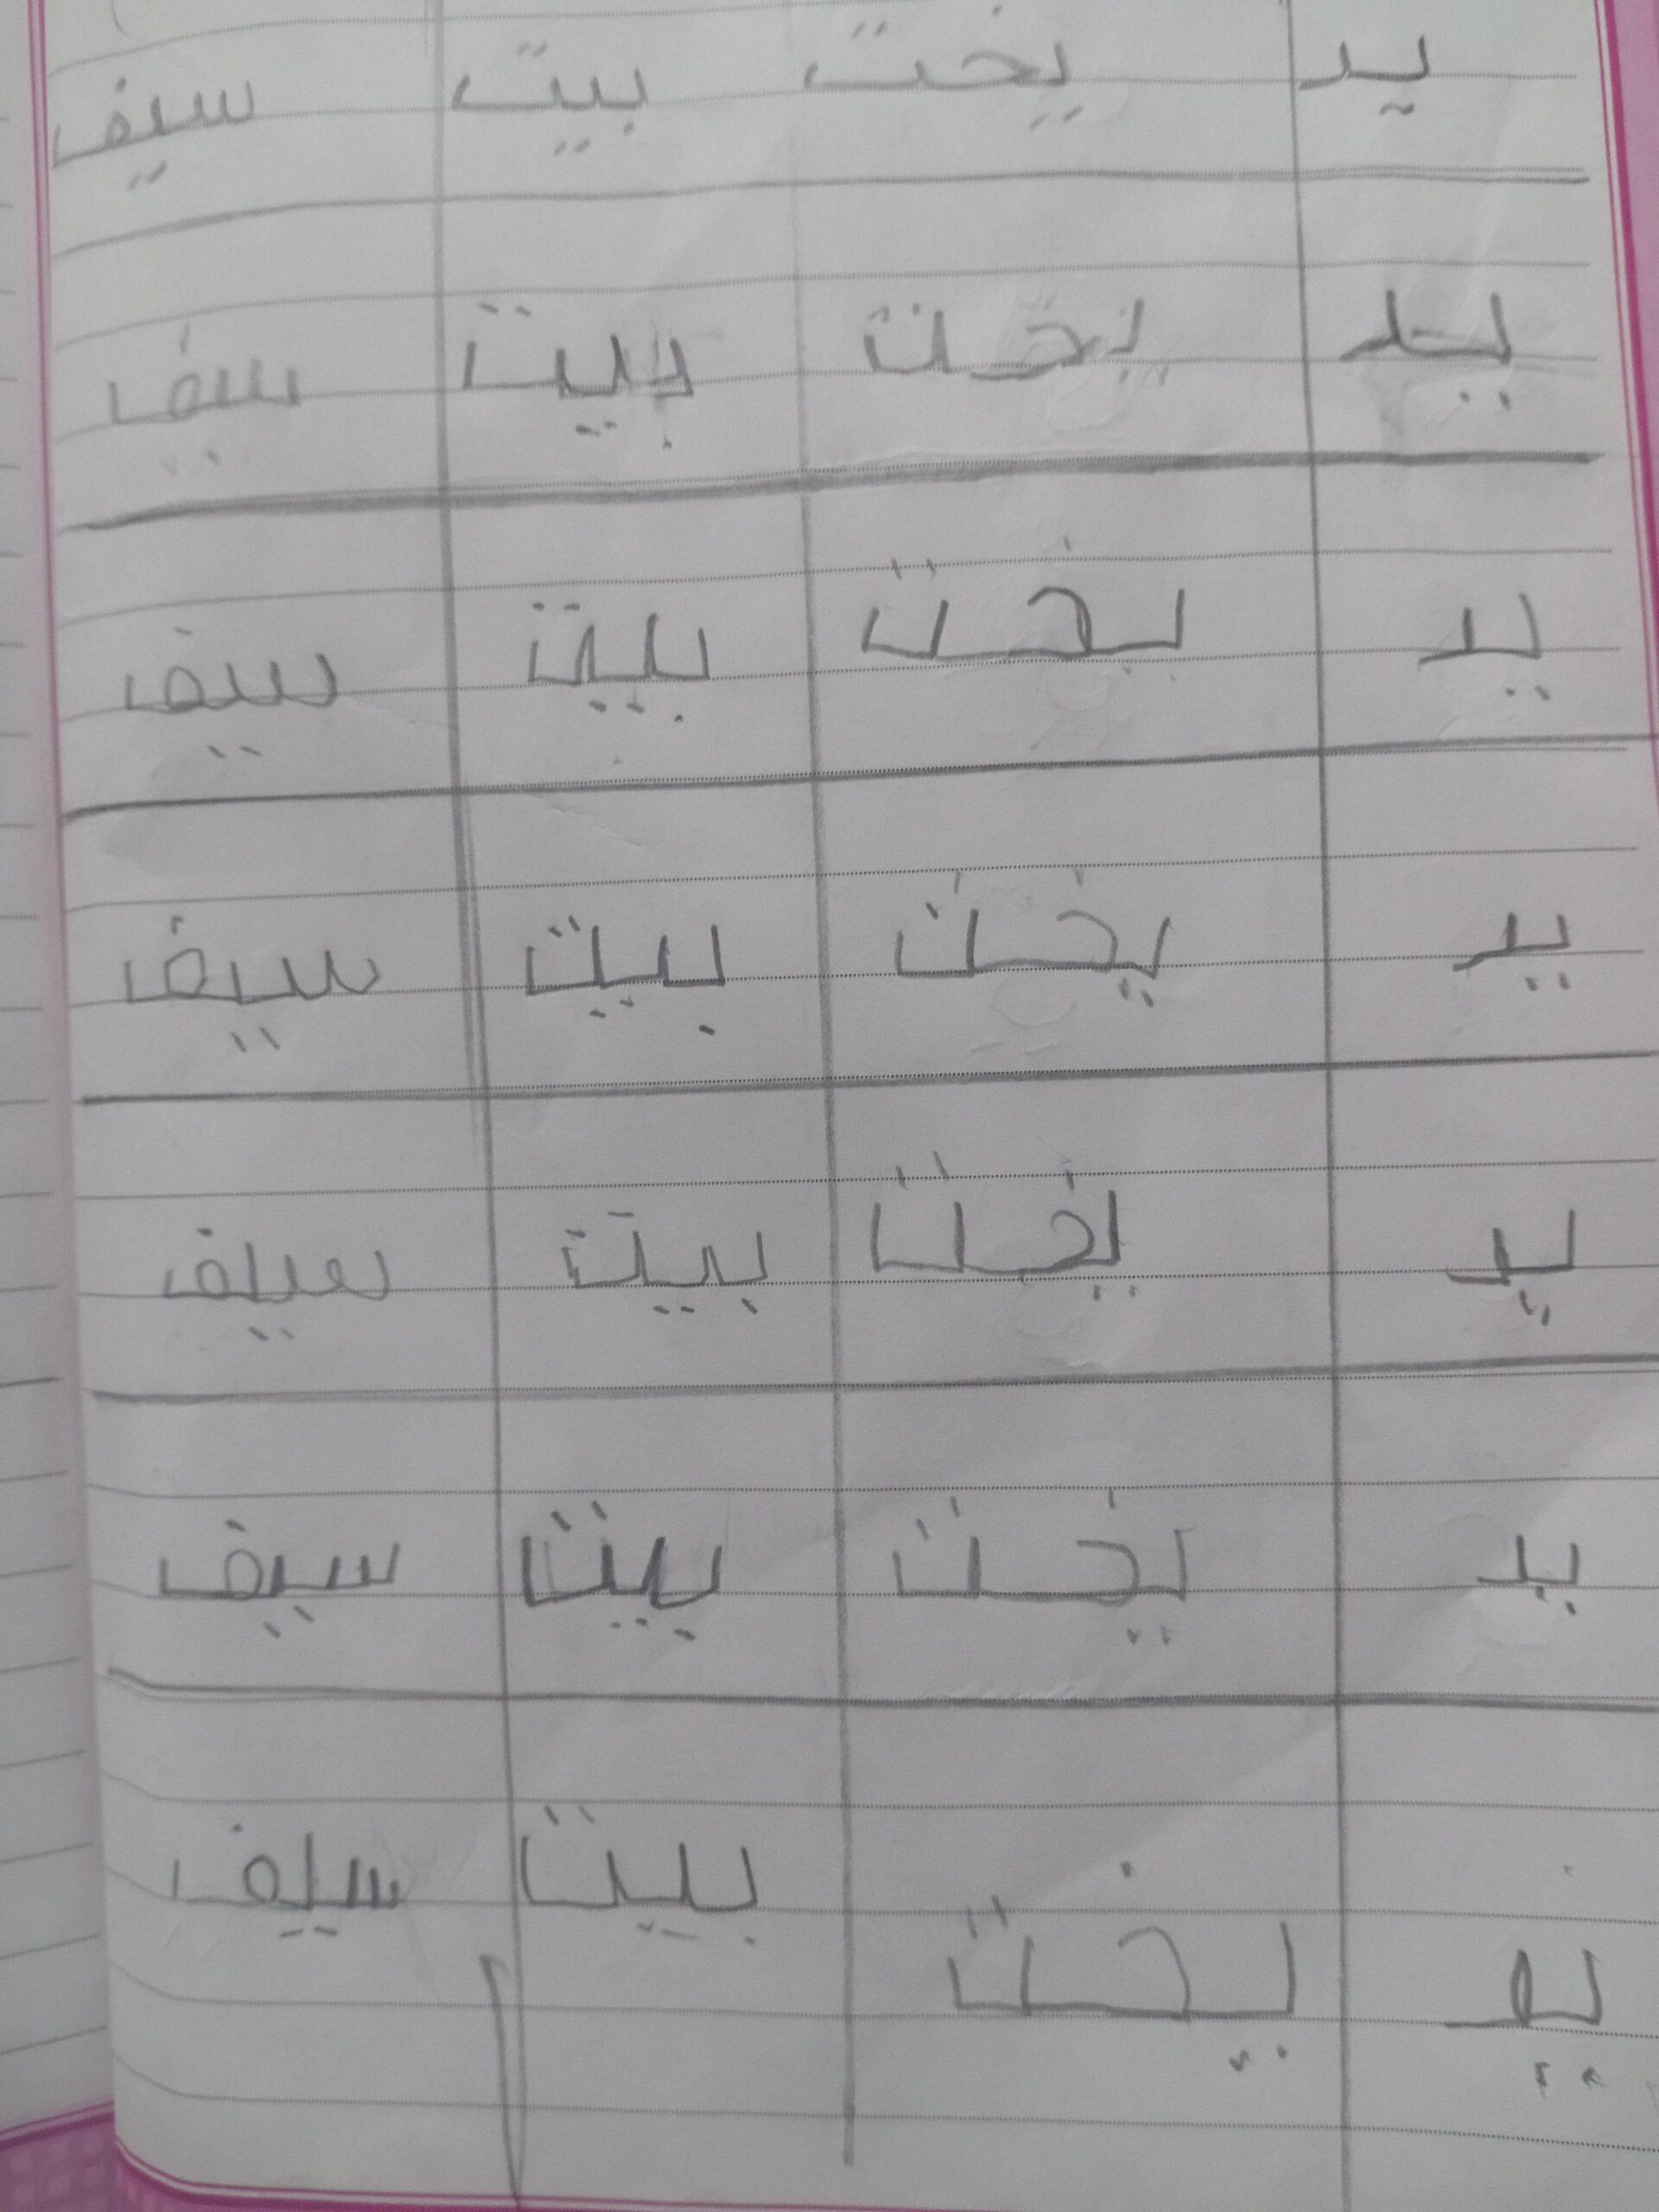 يد يخت بيت سيف
يد يخت بيت سيف
يد يخت بيت سيف
يد يخت بيت سيف
يد يخت بيت سيف
يد يخت بيت سيف
يد يخت بيت سيف